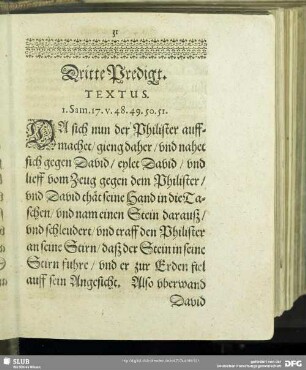 31
Dritte Predigt.
TEXTUS.
1. Sam. 17. v. 48. 49. 50. 51.
DA sich nun der Philister auff-
machet / gieng daher / vnd nahet
sich gegen David / eylet David / vnd
lieff vom Zeug gegen dem Philister /
vnd David thät seine Hand in die Ta-
schen / vnd nam einen Stein darauß /
vnd schleudert / vnd traff den Philister
an seine Stirn / daß der Stein in seine
Stirn fuhre / vnd er zur Erden fiel
auff sein Angesicht. Also vberwand
David
SLUB
DFG